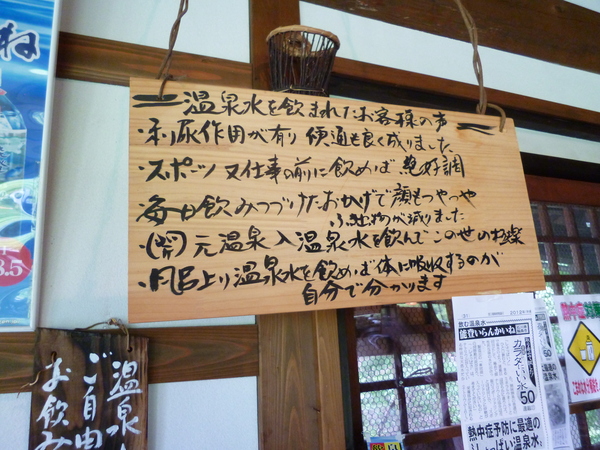 温泉水を飲まれたお客様の声
・利尿作用が有り 便通も良く成りました
・スポーツ又仕事の前に飲めば絶好調
・毎日飲みつづけたおかげで顔もつやつや
ふき出物が減りました
元温泉入温泉水を飲んでこの世の極楽
・風呂上り温泉水を飲めば体に吸収するのが
自分で分かります
ね
3.5
温泉
ご自由
お飲み
飲む温泉水
能登いらんかいね
カラダにいい水
50
熱中症予防に最適の
しょっぱい温泉水、
熱中症